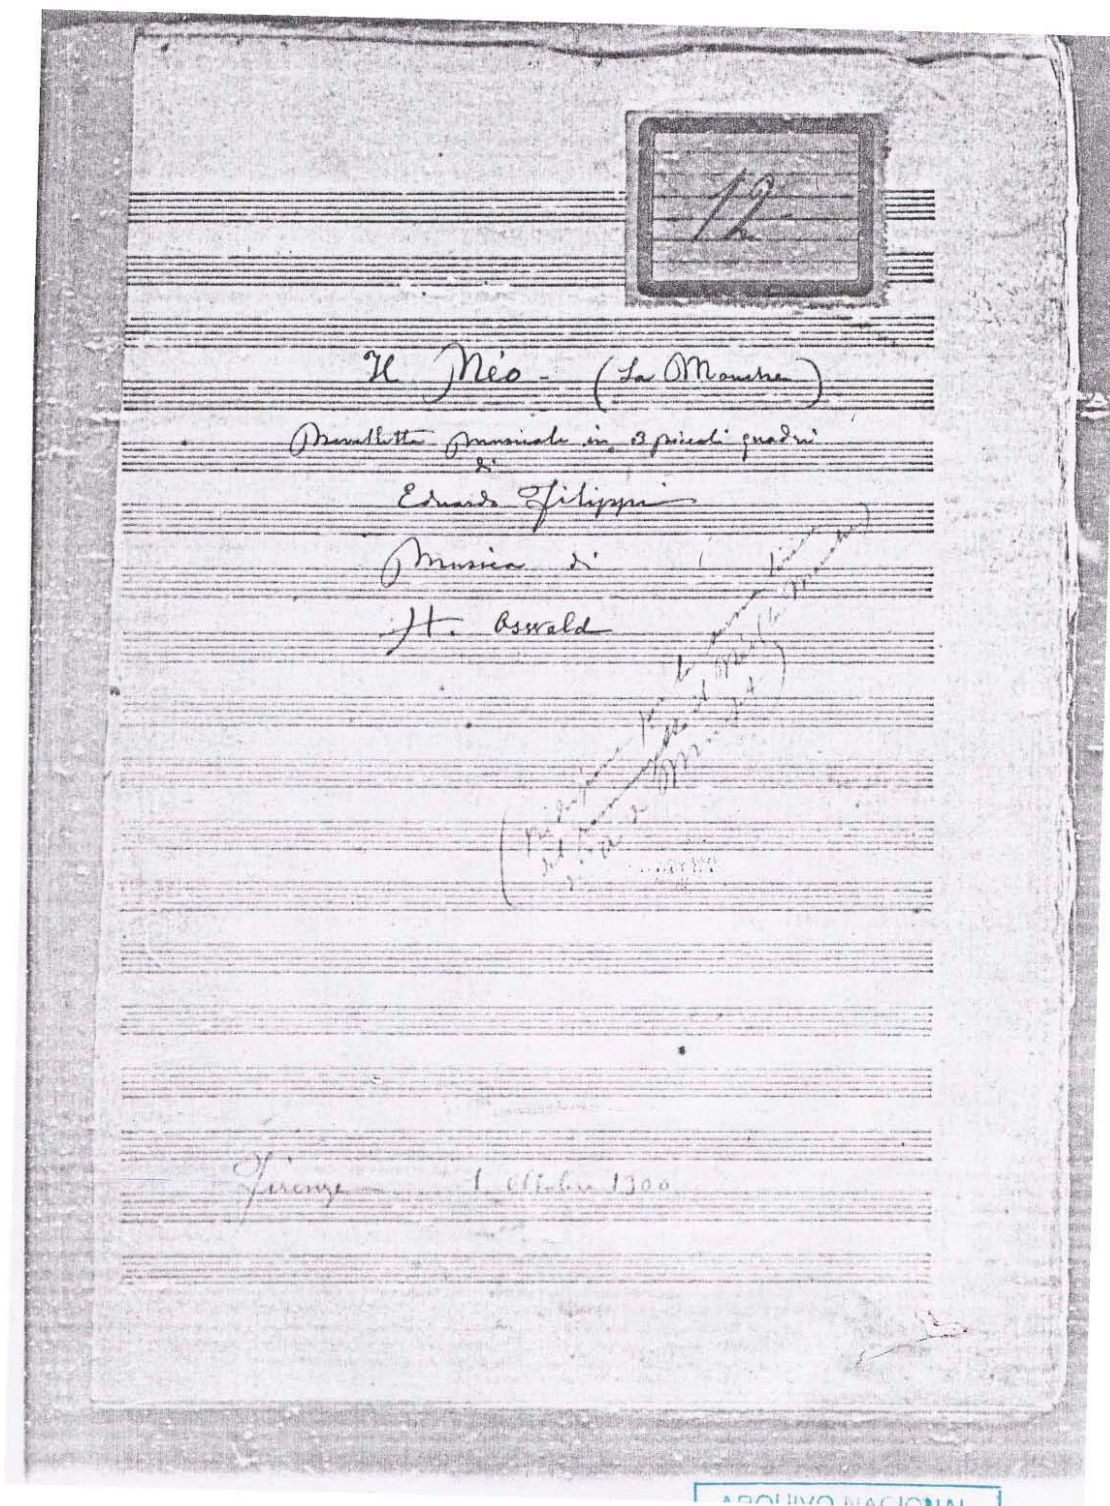 12
Il Néo - (La Mouche)
Novelletta musicale in 3 piccoli quadri
di
Eduardo Filippi
Musica di
H. Oswald
(Riduzione per
del
di Musset)
Firenze 1 Ottobre 1900
ARQUIVO NACIONAL